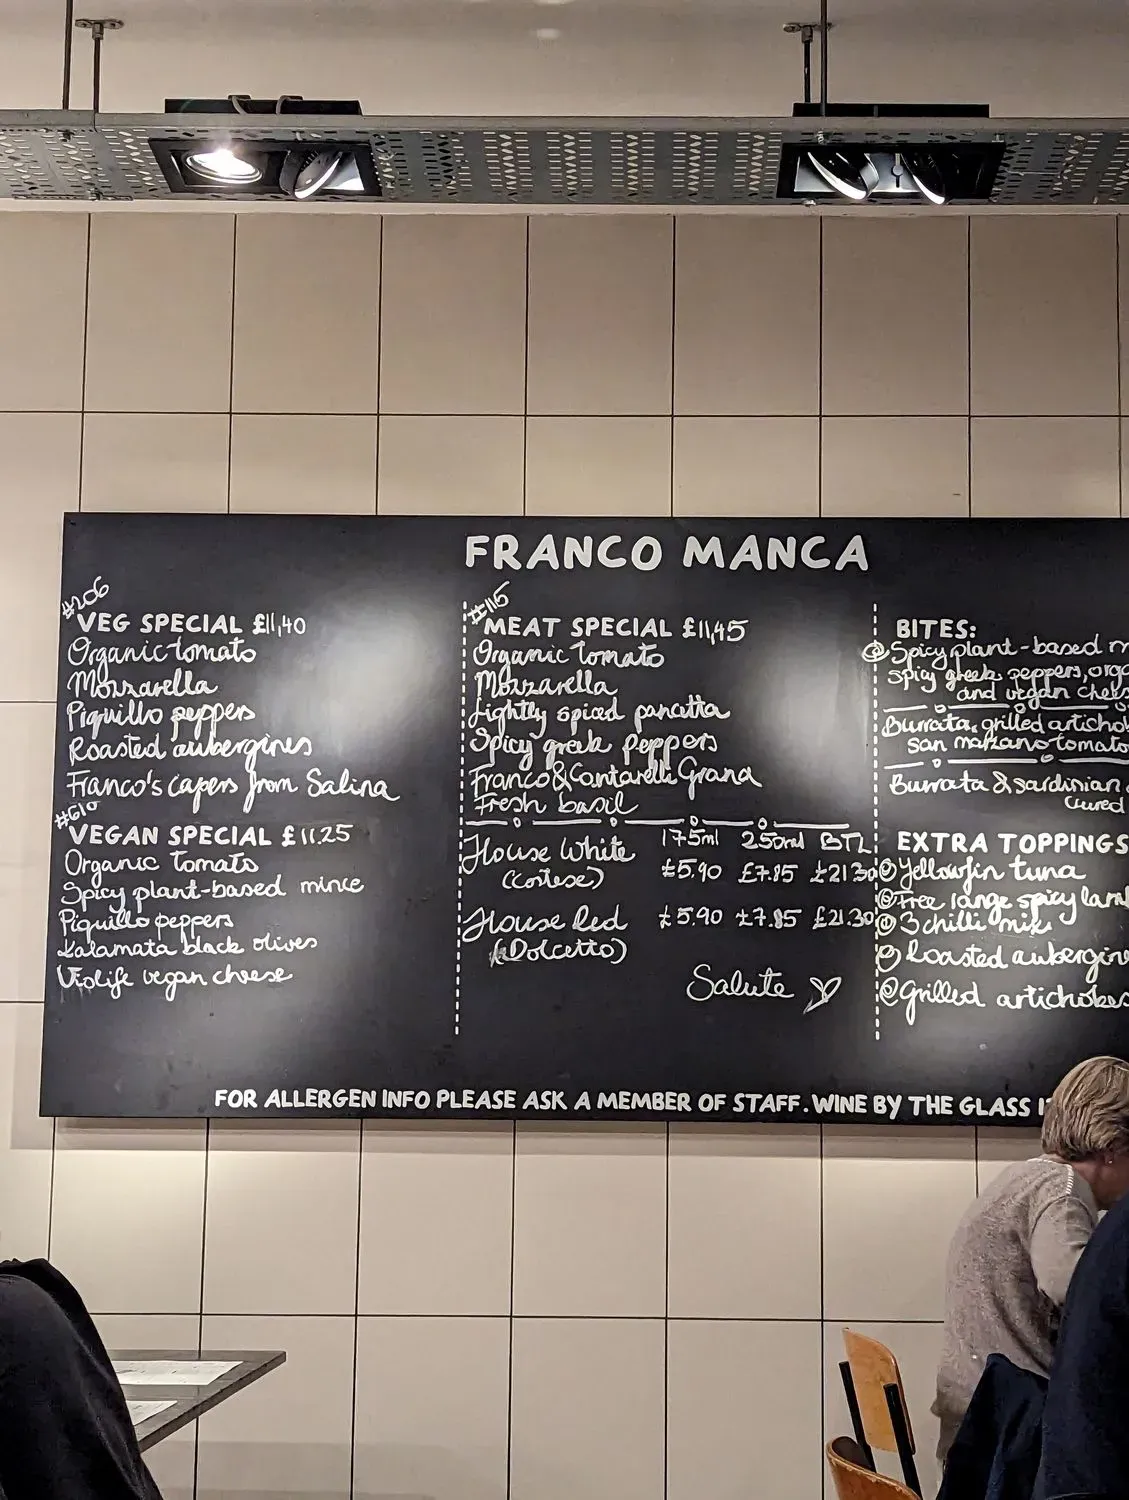 FRANCO MANCA
#206
VEG SPECIAL £11,40
Organic tomato
Mozzarella
Piquillo peppers
Roasted aubergines
Franco's capers from Salina
#610
VEGAN SPECIAL £11.25
Organic tomato
Spicy plant-based mince
Piquillo peppers
Kalamata black olives
Violife vegan cheese
#115
MEAT SPECIAL £11,45
Organic tomato
Mozzarella
Lightly spiced pancetta
Spicy greek peppers
Franco & Cantarelli Grana
Fresh basil
175ml 250ml BTL
House White £5.90 £7.85 £21.30
(Cortese)
House Red £5.90 £7.85 £21.30
(Dolcetto)
Salute
BITES:
Spicy plant-based m
spicy greek peppers, orga
and vegan chees
Burrata, grilled artichok
san marzano tomato
Burrata & sardinian
cured
EXTRA TOPPINGS
Yellowfin tuna
Free range spicy lamb
3 chilli mix
Roasted aubergine
Grilled artichokes
FOR ALLERGEN INFO PLEASE ASK A MEMBER OF STAFF. WINE BY THE GLASS